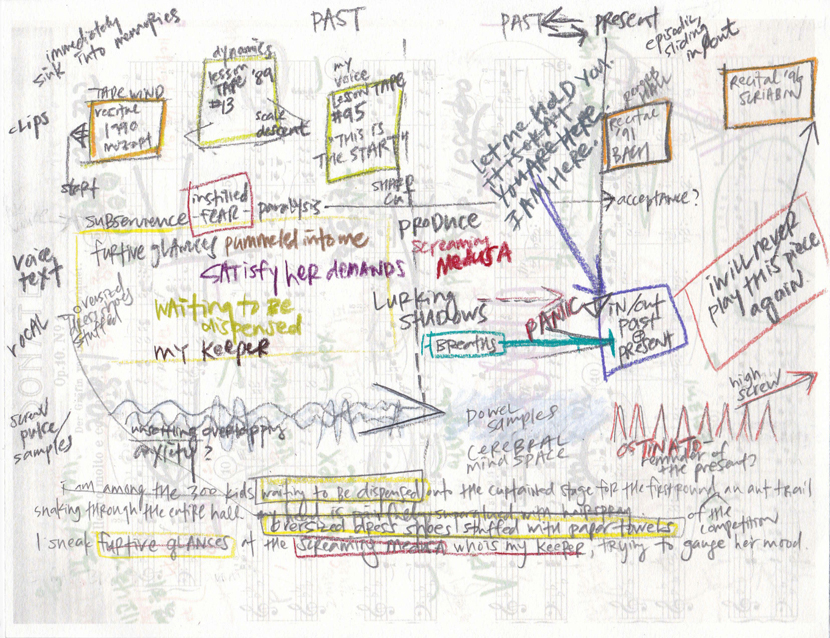 PAST
PAST
PRESENT
immediately
sink into memories
episodic,
sliding
in/out
dynamics
lesson
TAPE '89
#13
scale
descent
my
voice
Lesson TAPE
#95
"THIS IS
THE START"
TAPE WIND
recital
1990
mozart
clips
start
SHARP
CUT
let me HOLD YOU.
it is OKAY.
YOU ARE HERE.
I AM HERE.
Recital
'91
BACH
Recital '96
SCRIABIN
subservience
instilled
FEAR
paralysis
acceptance?
voice
text
furtive glances
pummeled into me
SATISFY HER DEMANDS
WAITING TO BE
dispensed
MY KEEPER
vocal
oversized
dress shoes
stuffed
PRODUCE
screaming
MEDUSA
LURKING
SHADOWS
BREATHS
PANIC
IN/OUT
PAST
@
PRESENT
i will never
play this piece
again.
screw
pulse/
samples
unsettling overlapping
anxiety?
DOWEL
SAMPLES
CEREBRAL
mind SPACE
high
screw
OSTINATO-
reminder of
the present?
I am among the 300 kids waiting to be dispensed onto the curtained stage for the first round, an ant trail
snaking through the entire hall. my head is painfully superglued with hairspray
of the
competition
oversized dress shoes stuffed with paper towels
I sneak furtive glances at the screaming medusa who is my keeper, trying to gauge her mood.